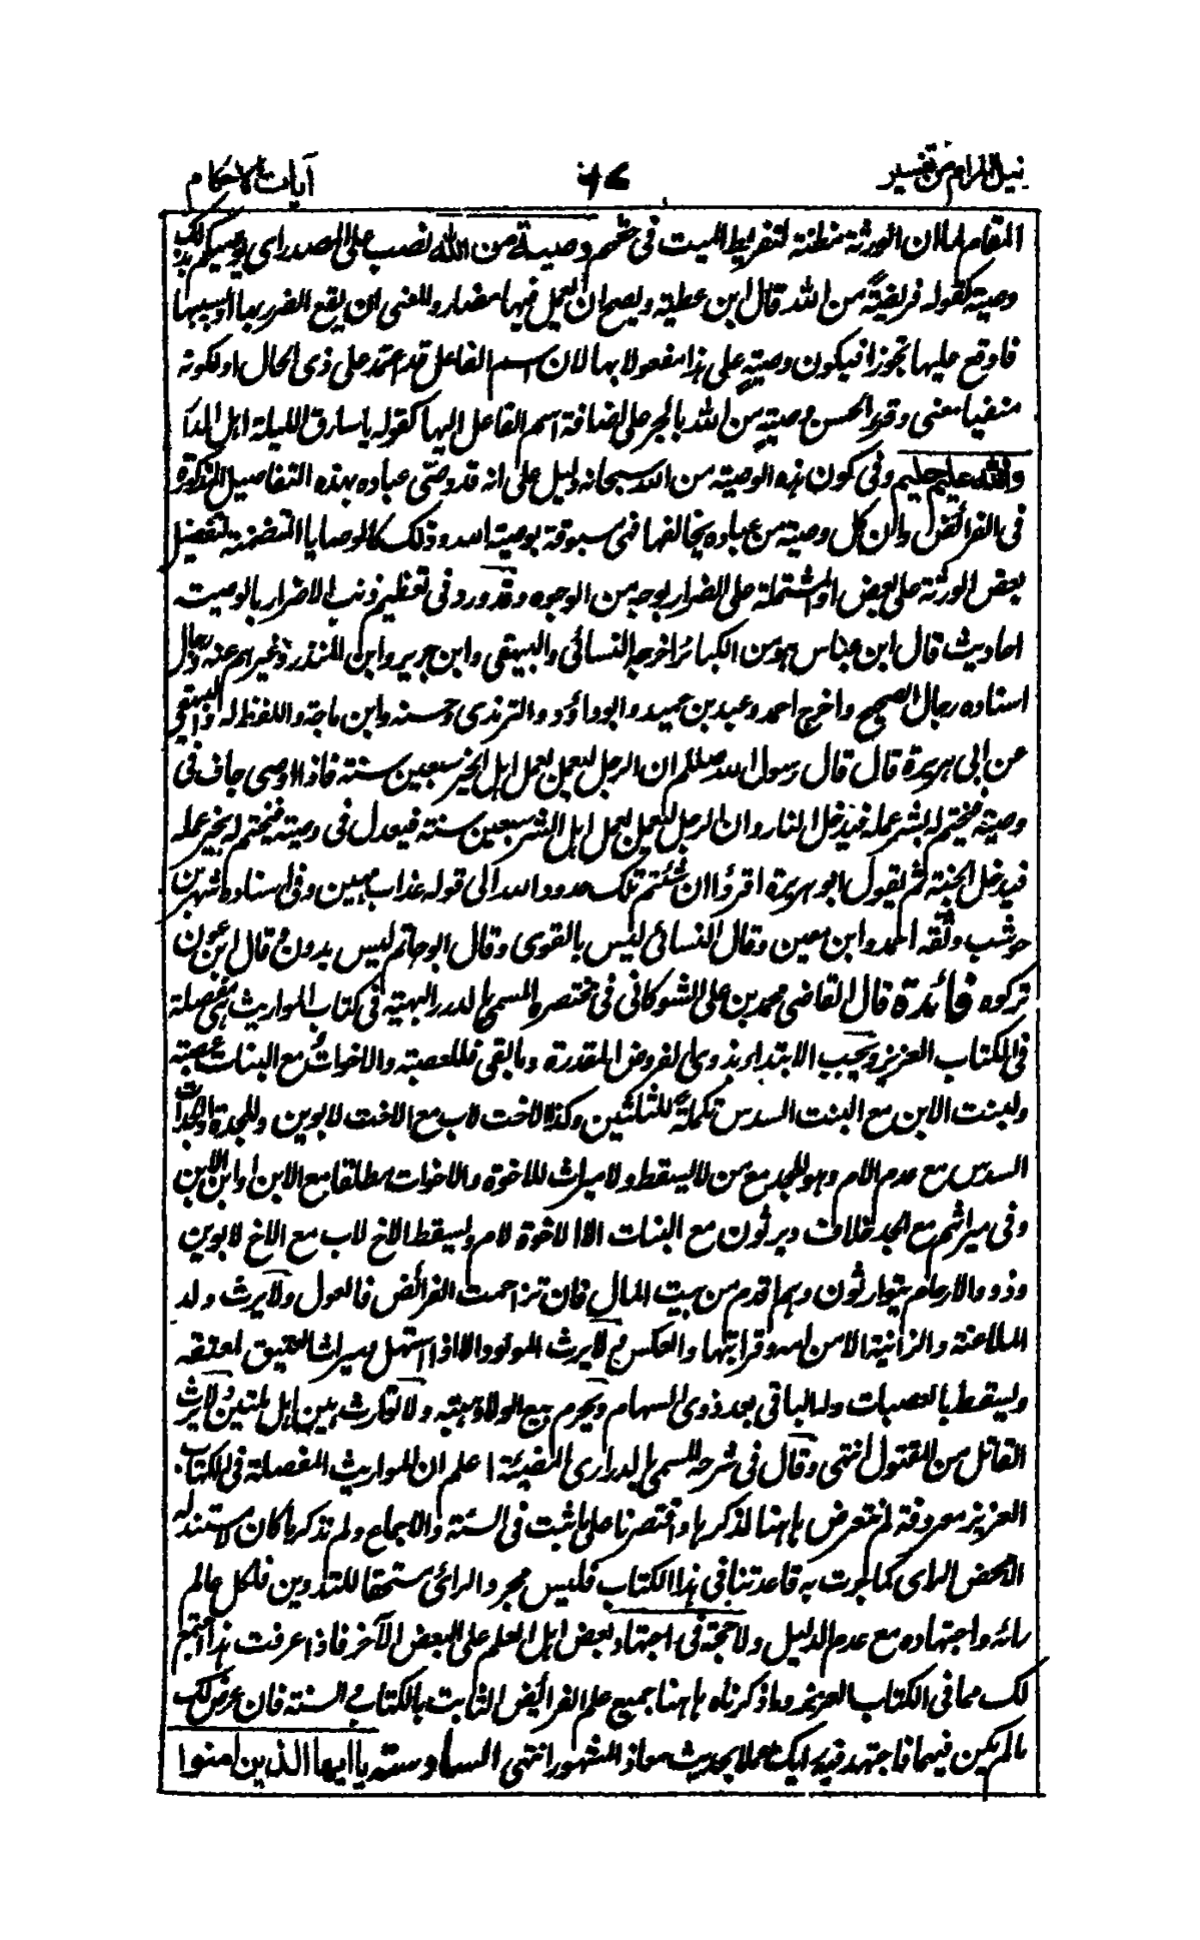 نيل المرام من تفسير ٩٤ آيات الاحكام
المقام لما ان الورثة مظنة لتفريط الميت فى حقهم وصية من الله نصب على المصدر اى يوصيكم بذلك
وصية كقوله فريضة من الله قال ابن عطية ويصح ان يعمل فيها مضار والمعنى ان يقع الضرر بها او بسببها
فاوقع عليها تجوزا فيكون وصية على هذا مفعولا بها لان اسم الفاعل قد اعتمد على ذى الحال او لكونه
منفيا معنى وقرأ الحسن وصية من الله بالجر على اضافة اسم الفاعل اليها كقوله يا سارق الليلة اهل الدار
والله عليم حليم وفى كون هذه الوصية من الله سبحانه دليل على انه قد وصّى عباده بهذه التفاصيل المذكورة
فى الفرائض وان كل وصية من عباده يخالفها فهى مسبوقة بوصية الله وذلك كالوصايا المتضمنة لتفضيل
بعض الورثة على بعض او المشتملة على الضرار بوجه من الوجوه وقد ورد فى تعظيم ذنب الاضرار بالوصية
احاديث قال ابن عباس هو من الكبائر اخرجه النسائى والبيهقى وابن جرير وابن المنذر وغيرهم عنه ورجال
اسناده رجال الصحيح واخرج احمد وعبد بن حميد وابو داؤد والترمذى وحسنه وابن ماجة واللفظ له والبيهقى
عن ابى هريرة قال قال رسول الله صللم ان الرجل ليعمل بعمل اهل الخير سبعين سنة فاذا اوصى حاف فى
وصيته فيختم له بشر عمله فيدخل النار وان الرجل ليعمل بعمل اهل الشر سبعين سنة فيعدل فى وصيته فيختم له بخير عمله
فيدخل الجنة ثم يقول ابو هريرة اقرؤا ان شئتم تلك حدود الله الى قوله عذاب مهين وفى اسناده شهر بن
حوشب وثقه احمد وابن معين وقال النسائى ليس بالقوى وقال ابو حاتم ليس بدون وقال ابن عون
تركوه فائدة قال القاضى محمد بن على الشوكانى فى مختصره المسمى بالدرر البهية فى كتاب المواريث هى مفصلة
فى الكتاب العزيز ويجب الابتداء بذوى الفروض المقدرة وما بقى فللعصبة والاخوات مع البنات عصبة
ولبنت الابن مع البنت السدس تكملة للثلثين وكذا الاخت لاب مع الاخت لابوين وللجدة والجدات
السدس مع عدم الام وهو للجد مع من لا يسقط ولا ميراث للاخوة والاخوات مطلقا مع الابن او ابن الابن
وفى ميراثهم مع الجد خلاف ويرثون مع البنات الا الاخوة لام ويسقط الاخ لاب مع الاخ لابوين
وذوو الارحام يتوارثون وهم اقدم من بيت المال فان تزاحمت الفرائض فالعول ولا يرث ولد
الملاعنة والزانية الا من امه وقرابتها والعكس ولا يرث المولود الا اذا استهل وميراث العتيق لمعتقه
ويسقط بالعصبات وله الباقى بعد ذوى السهام ويحرم بيع الولاء وهبته ولا توارث بين اهل ملتين ولا يرث
القاتل من المقتول انتهى وقال فى شرحه المسمى بالدرارى المضيئة اعلم ان المواريث المفصلة فى الكتاب
العزيز معروفة لم نتعرض ههنا لذكرها واقتصرنا على ما ثبت فى السنة والاجماع ولم نذكر ما كان لا مستند له
الا محض الراى كما جرت به قاعدتنا فى هذا الكتاب فليس مجرد الرائى مستحقا للتدوين فلكل عالم
رائه واجتهاده مع عدم الدليل ولا حجة فى اجتهاد بعض اهل العلم على البعض الآخر فاذا عرفت هذا اجتمع
لك مما فى الكتاب العزيز وما ذكرناه ههنا جميع علم الفرائض الثابت بالكتاب والسنة فان عرض لك
ما لم يكن فيهما فاجتهد فيه رايك عملا بحديث معاذ المشهور انتهى السادسة يا ايها الذين امنوا